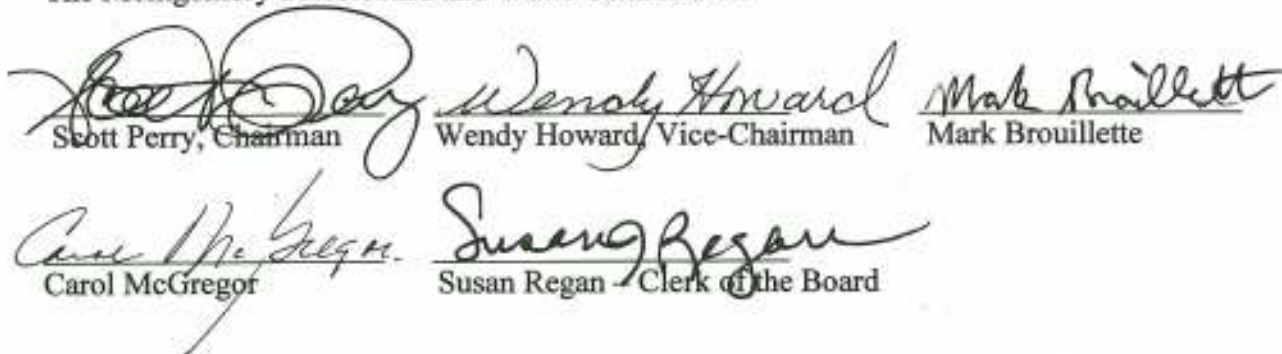 Scott Perry Wendy Howard Mark Brouillette
Scott Perry, Chairman Wendy Howard, Vice-Chairman Mark Brouillette
Carol McGregor Susan Regan
Carol McGregor Susan Regan - Clerk of the Board